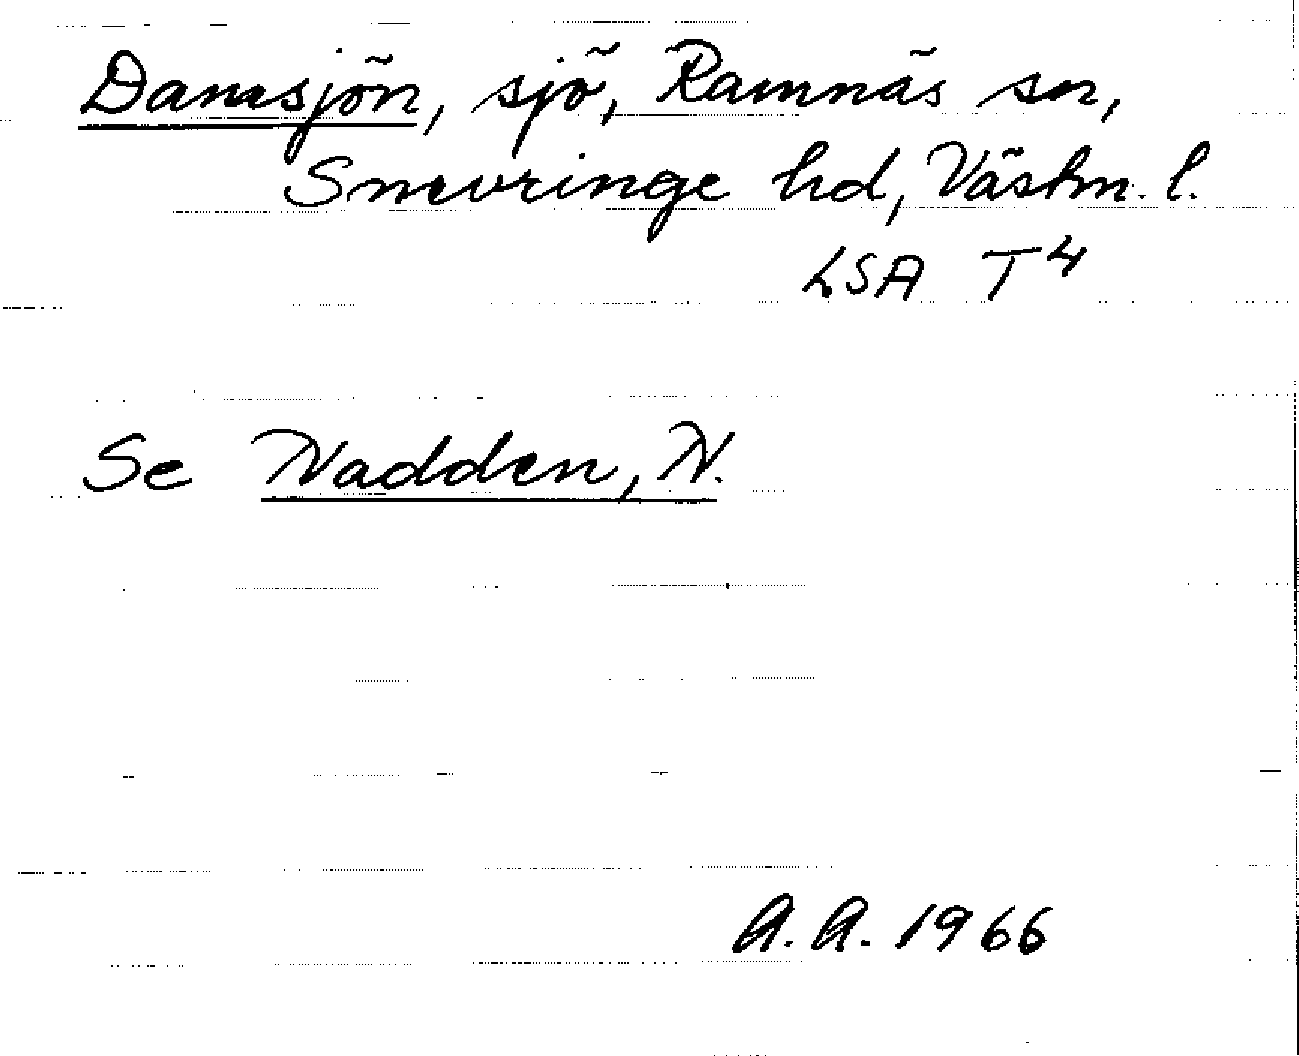 Damsjön, sjö, Ramnäs sn,
Snevringe hd, Västm. l.
LSA T4
Se Nadden, N.
A.A. 1966